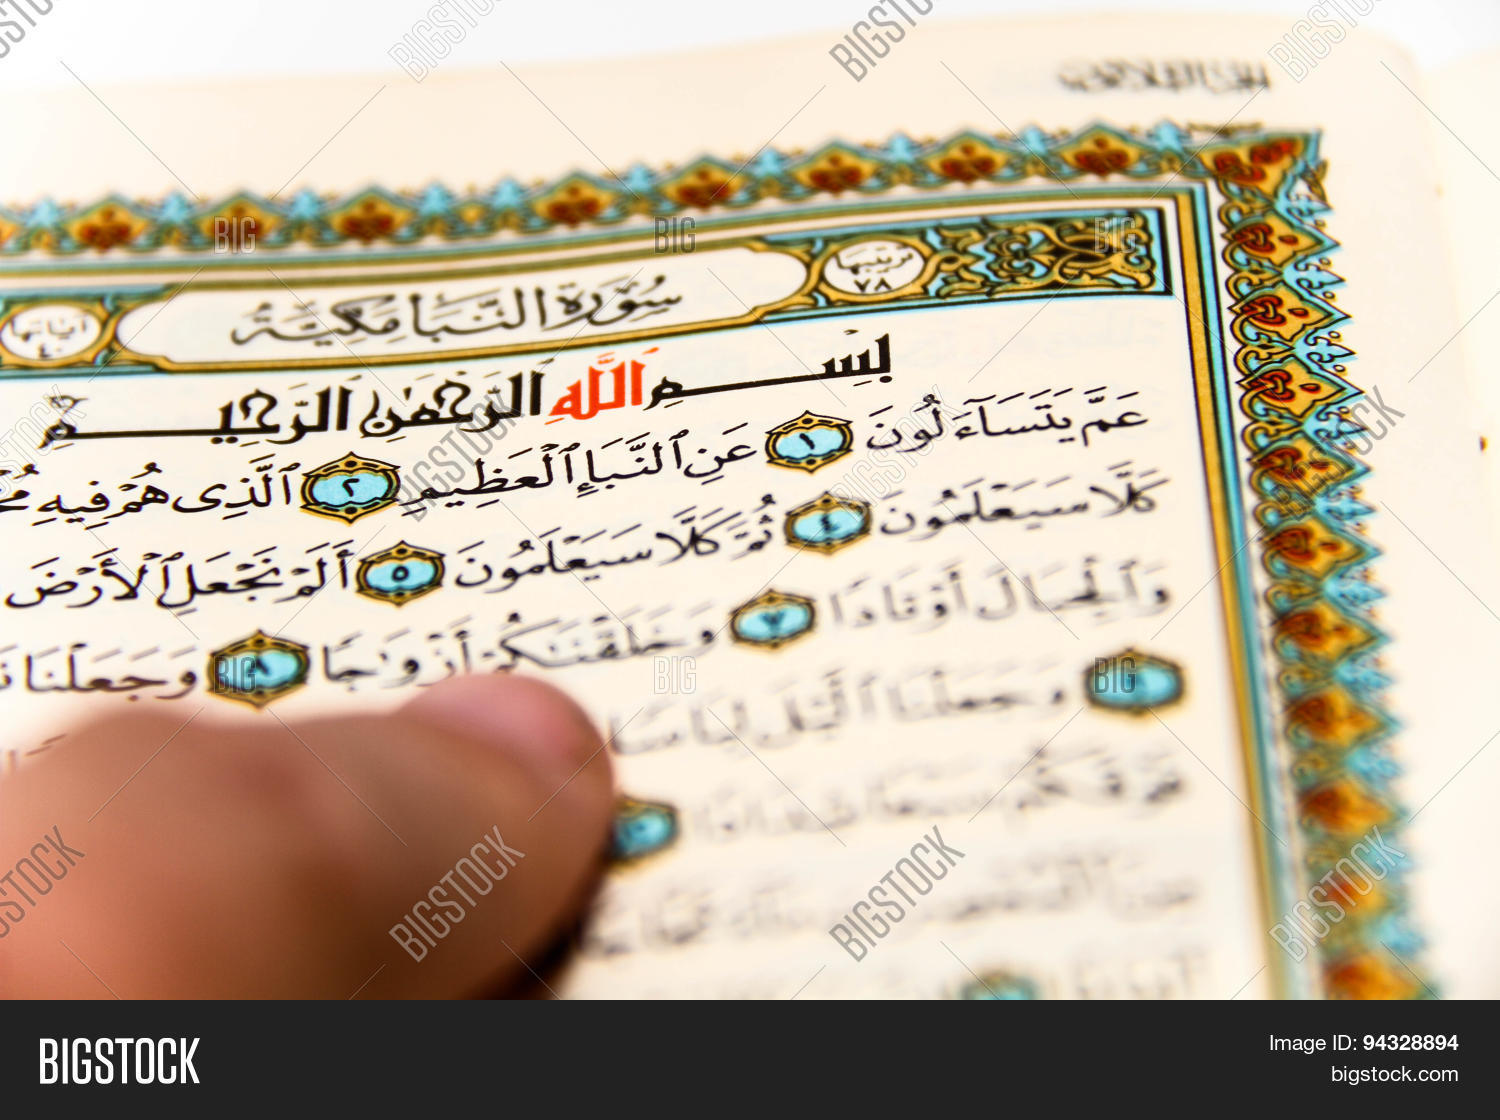 ترتيبها
٧٨
سُورَةُ النَّبَإِ مَكِّيَّةٌ
آياتها
٤٠
بِسْمِ اللَّهِ الرَّحْمَٰنِ الرَّحِيمِ
عَمَّ يَتَسَآءَلُونَ ١ عَنِ ٱلنَّبَإِ ٱلْعَظِيمِ ٢ ٱلَّذِى هُمْ فِيهِ
كَلَّا سَيَعْلَمُونَ ٤ ثُمَّ كَلَّا سَيَعْلَمُونَ ٥ أَلَمْ نَجْعَلِ ٱلْأَرْضَ
وَٱلْجِبَالَ أَوْتَادًا ٧ وَخَلَقْنَٰكُمْ أَزْوَٰجًا ٨ وَجَعَلْنَا
٩ وَجَعَلْنَا ٱلَّيْلَ لِبَاسًا
فَوْقَكُمْ سَبْعًا شِدَادًا
BIGSTOCK
Image ID: 94328894
bigstock.com